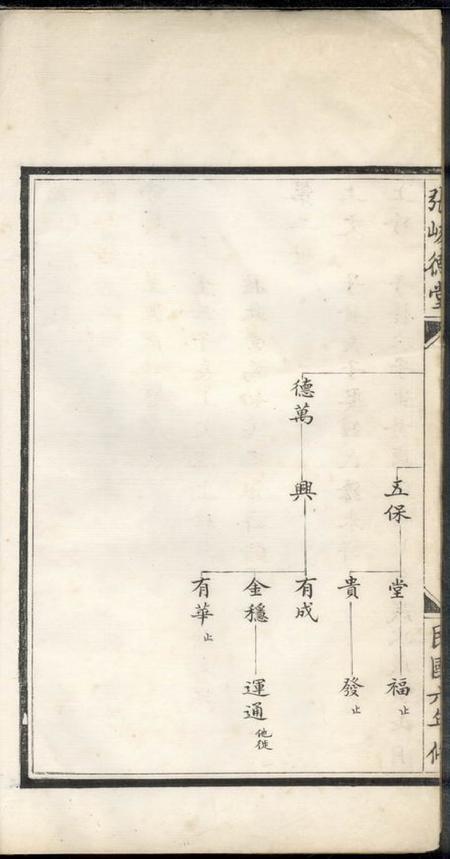 張岐德堂
民國六年修
五保
堂
福
止
貴
發
止
德萬
興
有成
金穩
運通
他徙
有華
止